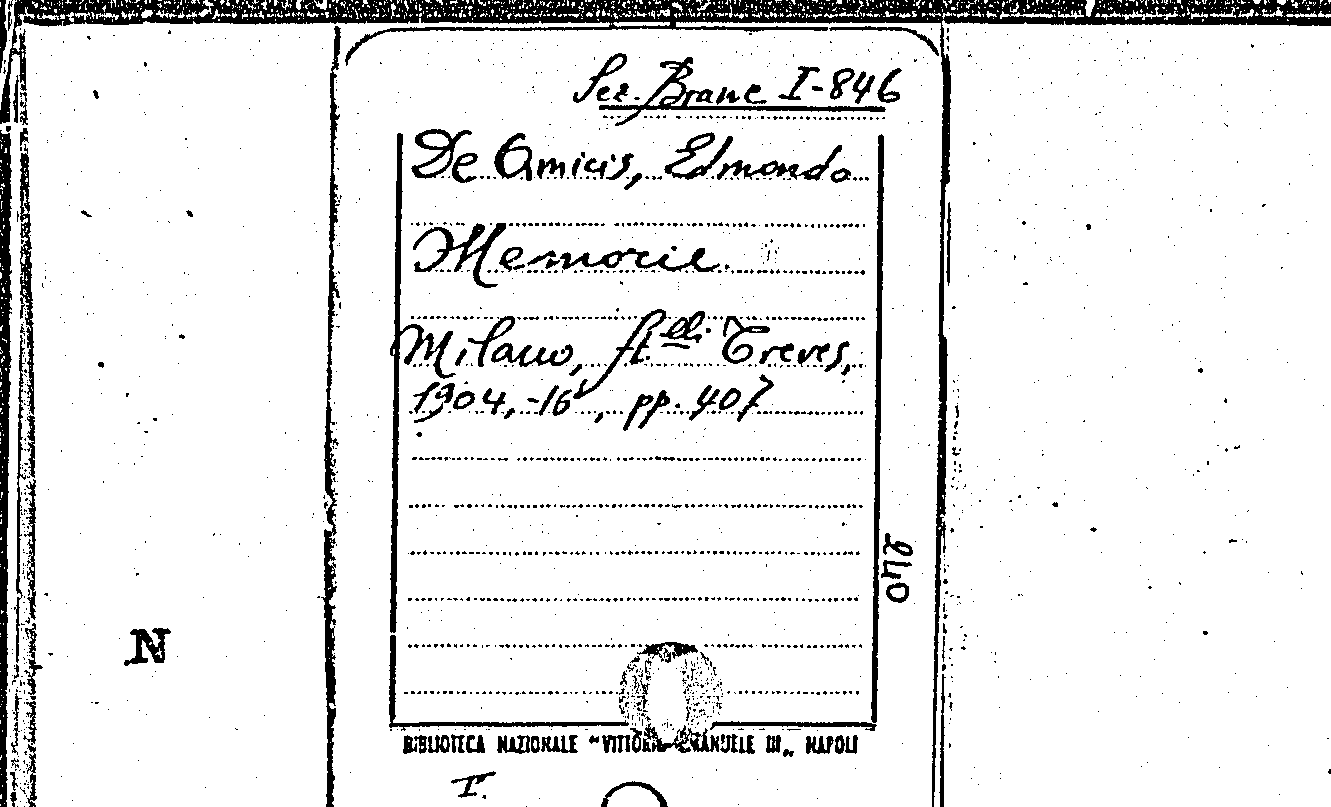 Sez. Branc I-846
De Amicis, Edmondo
Memorie.
Milano, ft.elli Treves,
1904, -16°, pp. 407
240
N
BIBLIOTECA NAZIONALE "VITTORIO EMANUELE III„ NAPOLI
I.